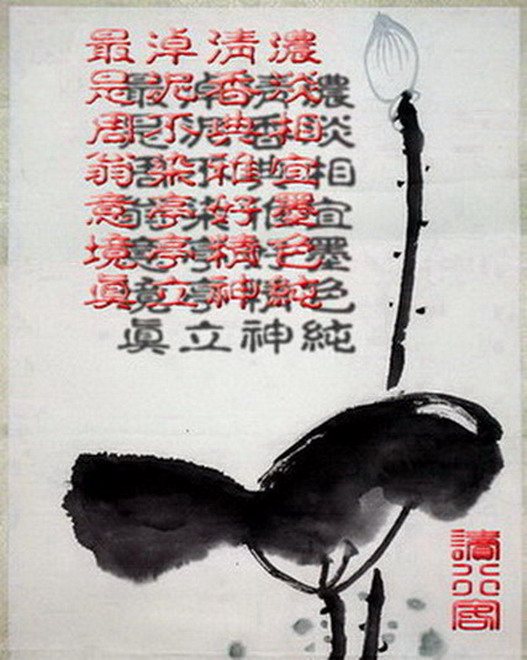 濃淡相宜墨色純
清香典雅好精神
淖泥不染亭亭立
最是周翁意境眞